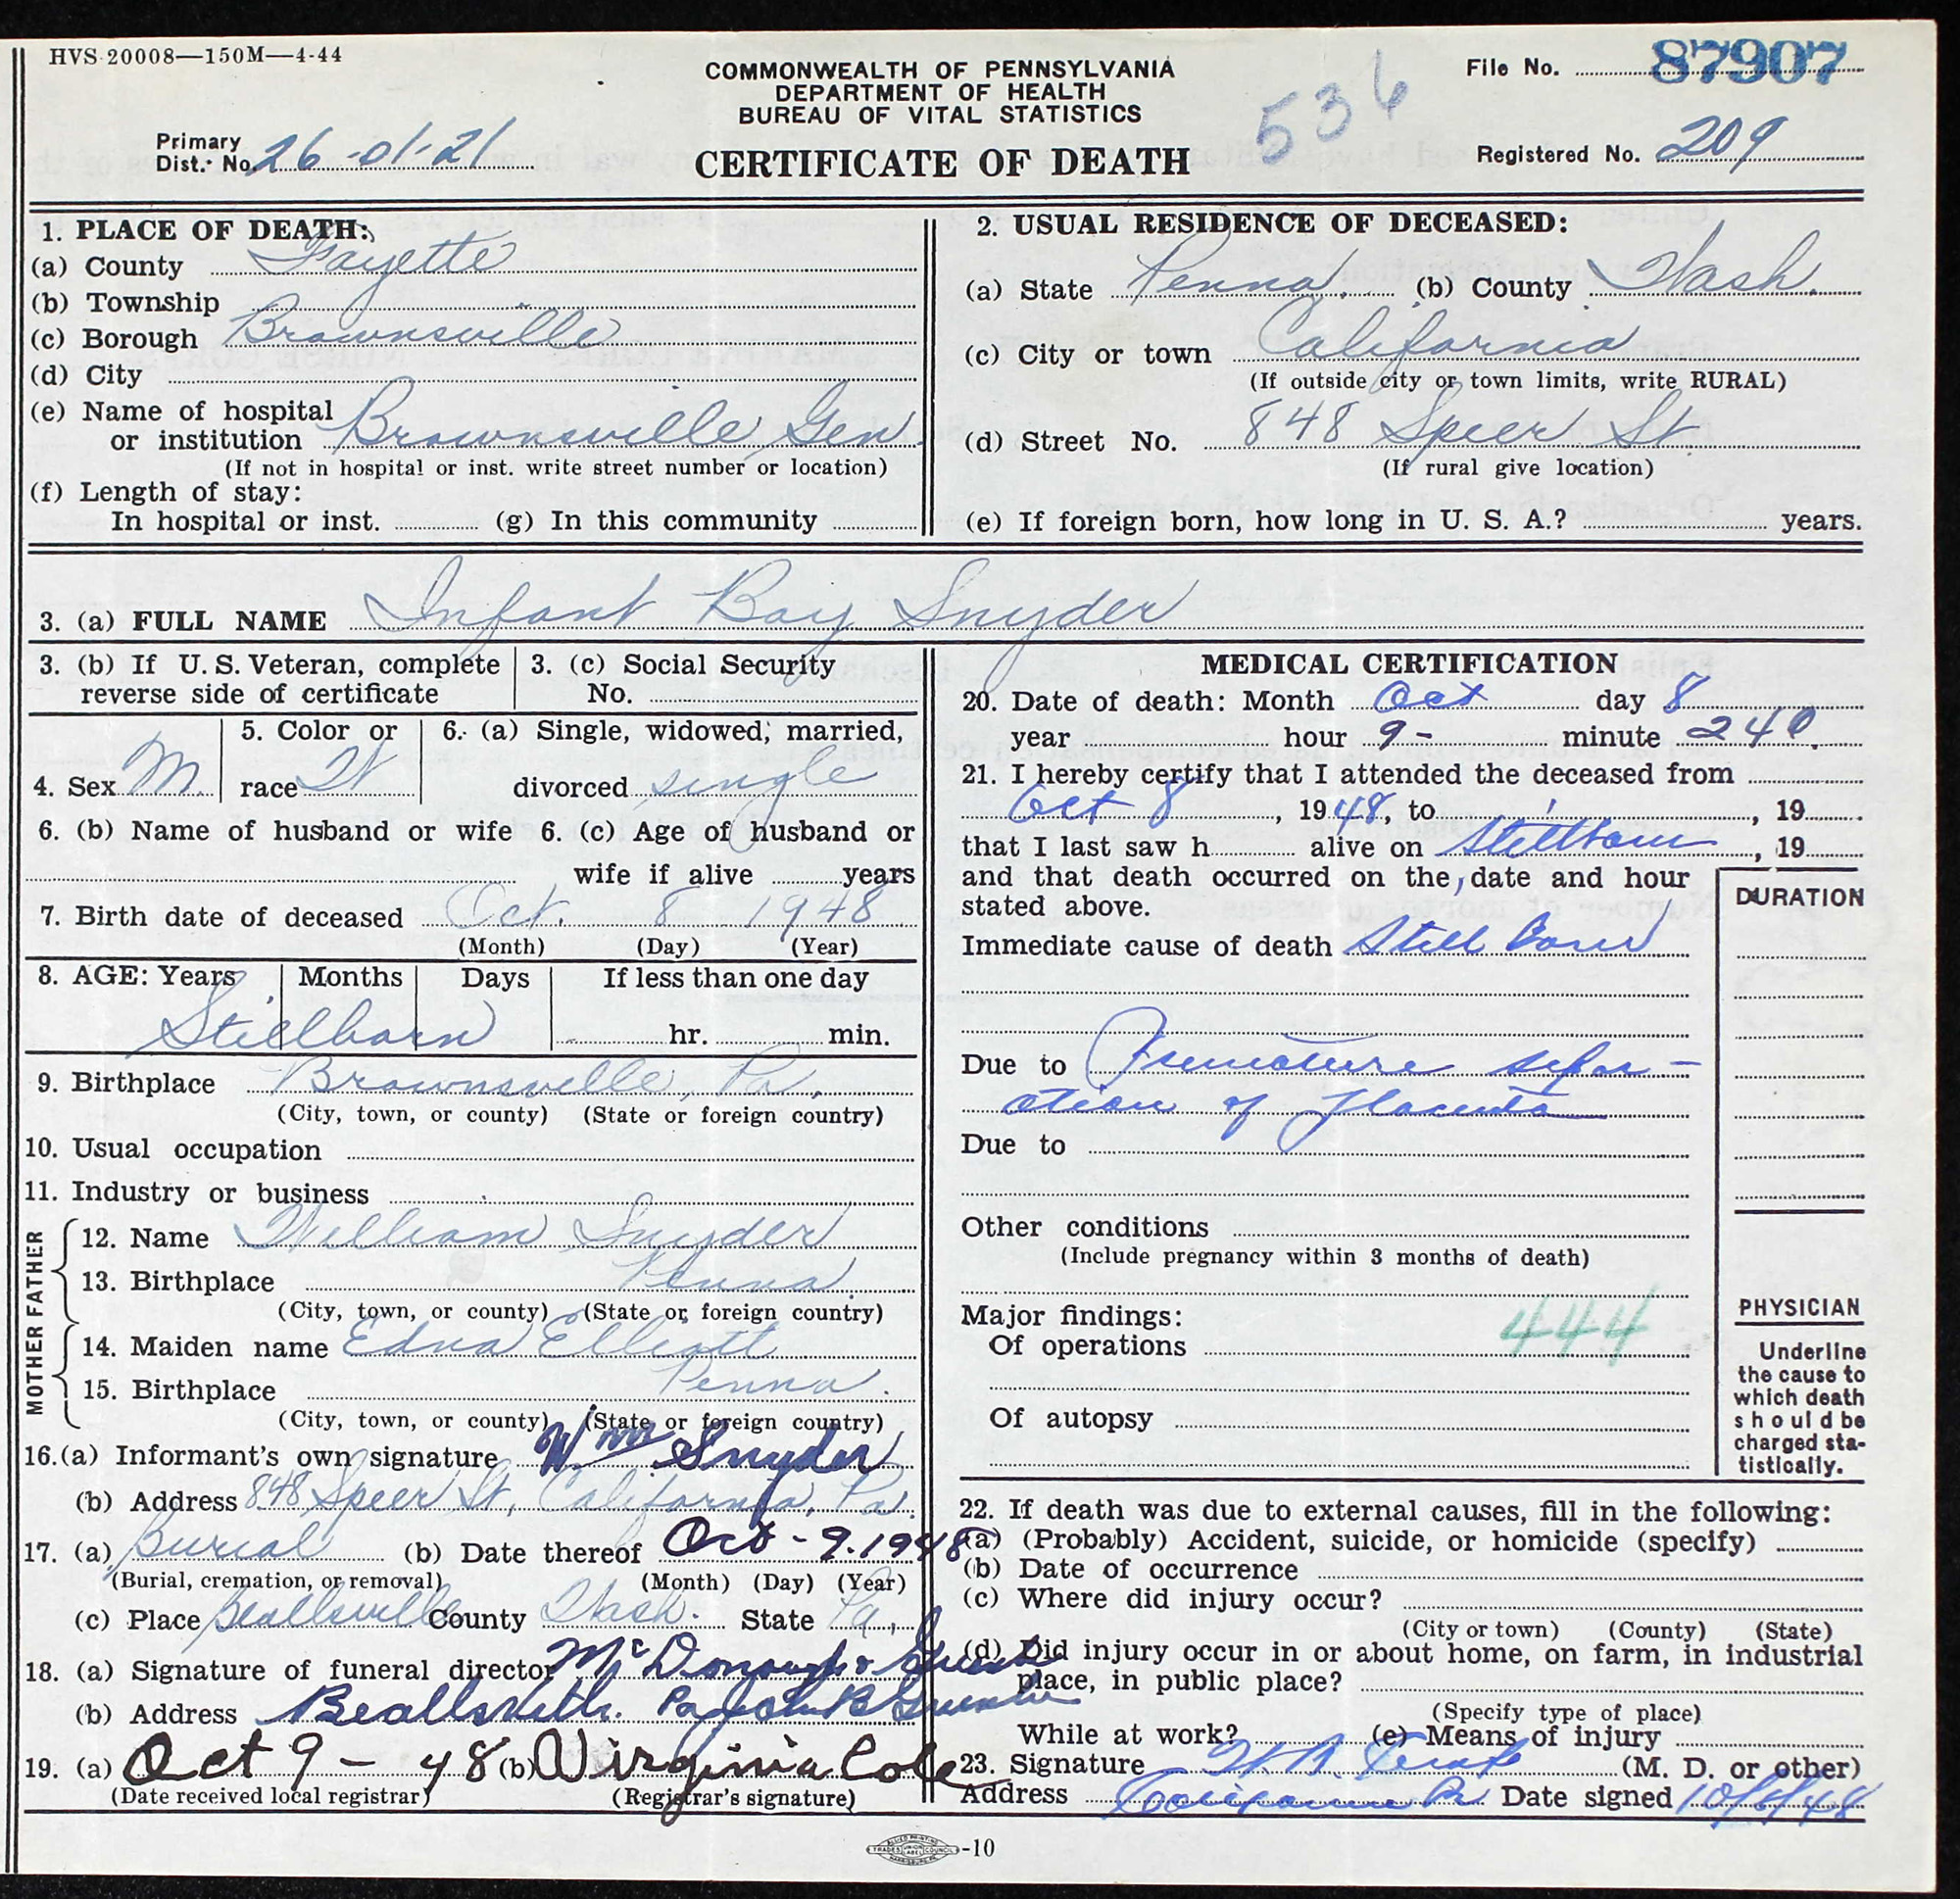 HVS 20008—150M—4-44
COMMONWEALTH OF PENNSYLVANIA
DEPARTMENT OF HEALTH
BUREAU OF VITAL STATISTICS
536
File No. 87907
Primary
Dist. No. 26-01-21
CERTIFICATE OF DEATH
Registered No. 209
1. PLACE OF DEATH:
(a) County Fayette
(b) Township
(c) Borough Brownsville
(d) City
(e) Name of hospital
or institution Brownsville Gen
(If not in hospital or inst. write street number or location)
(f) Length of stay:
In hospital or inst. (g) In this community
2. USUAL RESIDENCE OF DECEASED:
(a) State Penna. (b) County Wash.
(c) City or town California
(If outside city or town limits, write RURAL)
(d) Street No. 848 Speer St
(If rural give location)
(e) If foreign born, how long in U. S. A.? years.
3. (a) FULL NAME Infant Boy Snyder
3. (b) If U. S. Veteran, complete
reverse side of certificate
3. (c) Social Security
No.
4. Sex M.
5. Color or
race W
6. (a) Single, widowed, married,
divorced single
6. (b) Name of husband or wife 6. (c) Age of husband or
wife if alive years
7. Birth date of deceased Oct. 8 1948
(Month) (Day) (Year)
8. AGE: Years Months Days If less than one day
Stillborn hr. min.
9. Birthplace Brownsville, Pa.
(City, town, or county) (State or foreign country)
10. Usual occupation
11. Industry or business
FATHER
12. Name William Snyder
13. Birthplace Penna.
(City, town, or county) (State or foreign country)
MOTHER
14. Maiden name Edna Elliott
15. Birthplace Penna.
(City, town, or county) (State or foreign country)
16.(a) Informant's own signature Wm Snyder
(b) Address 848 Speer St, California, Pa.
17. (a) Burial (b) Date thereof Oct - 9. 1948
(Burial, cremation, or removal) (Month) (Day) (Year)
(c) Place Beallsville County Wash. State Pa.
18. (a) Signature of funeral director McDonough &
(b) Address Beallsville. Pa John B
19. (a) Oct 9 - 48 (b) Virginia Cole
(Date received local registrar) (Registrar's signature)
MEDICAL CERTIFICATION
20. Date of death: Month Oct day 8
year hour 9- minute 240.
21. I hereby certify that I attended the deceased from
Oct 8, 1948, to , 19
that I last saw h alive on Stillborn, 19
and that death occurred on the date and hour
stated above.
DURATION
Immediate cause of death Still Born
Due to Premature separ-
ation of Placenta
Due to
Other conditions
(Include pregnancy within 3 months of death)
Major findings:
444
Of operations
Of autopsy
PHYSICIAN
Underline
the cause to
which death
should be
charged sta-
tistically.
22. If death was due to external causes, fill in the following:
(a) (Probably) Accident, suicide, or homicide (specify)
(b) Date of occurrence
(c) Where did injury occur?
(City or town) (County) (State)
(d) Did injury occur in or about home, on farm, in industrial
place, in public place?
(Specify type of place)
While at work? (e) Means of injury
23. Signature (M. D. or other)
Address Date signed 10/8/48
-10